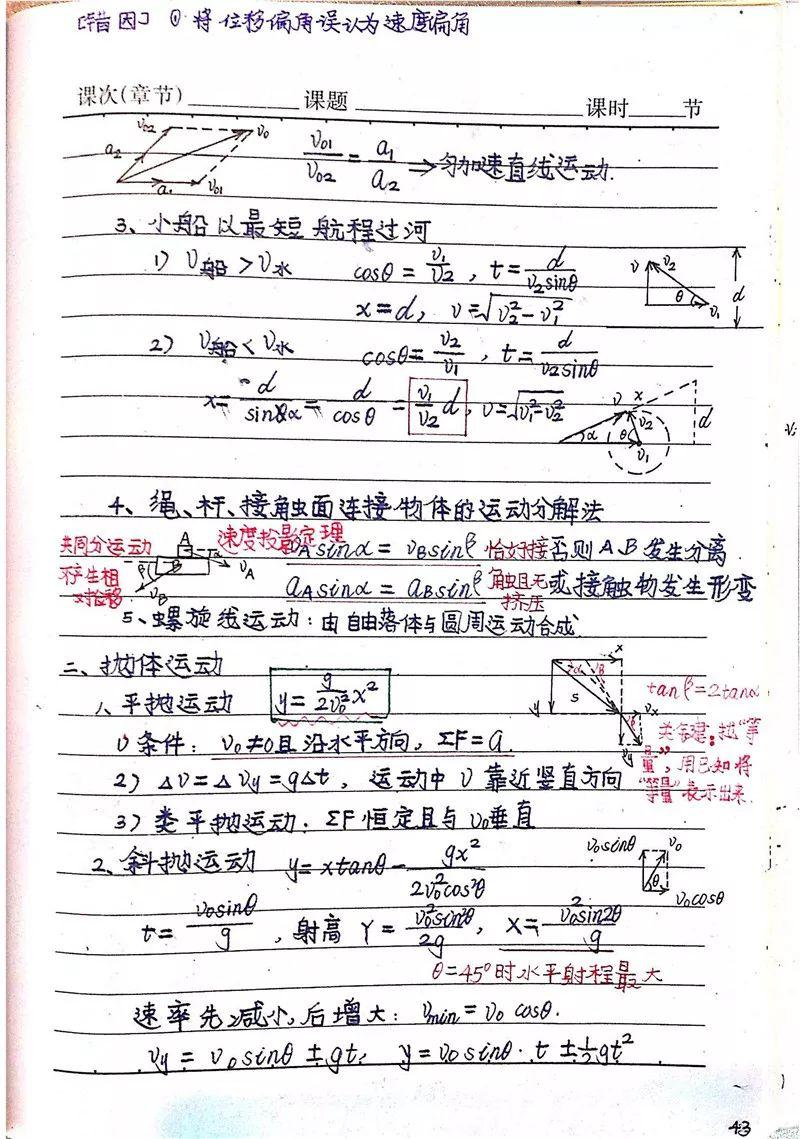 [错因] ① 将位移偏角误认为速度偏角
课次(章节)________ 课题 ________________ 课时____节
v₀₂ v₀ a₂ a₁ v₀₁
v₀₁/v₀₂ = a₁/a₂ ⇒ 匀加速直线运动.
3、小船以最短航程过河
1) v船 > v水 cosθ = v₁/v₂ , t = d/(v₂sinθ)
x = d, v = √(v₂²-v₁²)
v v₂ θ v₁ d
2) v船 < v水 cosθ = v₂/v₁ , t = d/(v₂sinθ)
x = d/sinα = d/cosθ = v₁/v₂ d, v = √(v₁²-v₂²)
v x v₂ α θ v₁ d
4、绳、杆、接触面连接物体的运动分解法
共同分运动
不产生相
对位移
A α v_A β B v_B
速度投影定理
v_A sinα = v_B sinβ 恰好接 否则A、B发生分离
a_A sinα = a_B sinβ 触且无 或接触物发生形变
挤压
5、螺旋线运动: 由自由落体与圆周运动合成
二、抛体运动
1、平抛运动 y = g/(2v₀²) x²
x α β s y vₓ β v_y
tanβ=2tanα
关键: 找“等
量”, 用已知将
“等量”表示出来.
1) 条件: v₀≠0且沿水平方向, ΣF=G.
2) Δv=Δv_y=gΔt, 运动中v靠近竖直方向
3) 类平抛运动: ΣF恒定且与v₀垂直
2、斜抛运动 y = xtanθ - gx²/(2v₀²cos²θ)
v₀sinθ v₀ θ v₀cosθ
t = v₀sinθ/g , 射高 Y = v₀²sin²θ/2g , X = v₀²sin2θ/g
θ=45°时水平射程最大
速率先减小, 后增大: v_min = v₀ cosθ.
v_y = v₀sinθ ± gt, y = v₀sinθ·t ± ½gt²
43